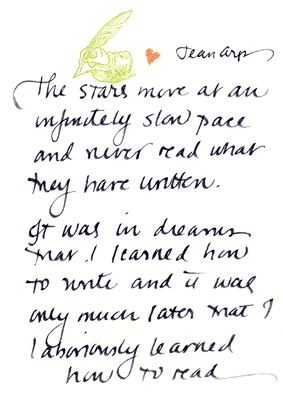 Jean Arp
The stars move at an
infinitely slow pace
and never read what
they have written.
It was in dreams
that I learned how
to write and it was
only much later that I
laboriously learned
how to read